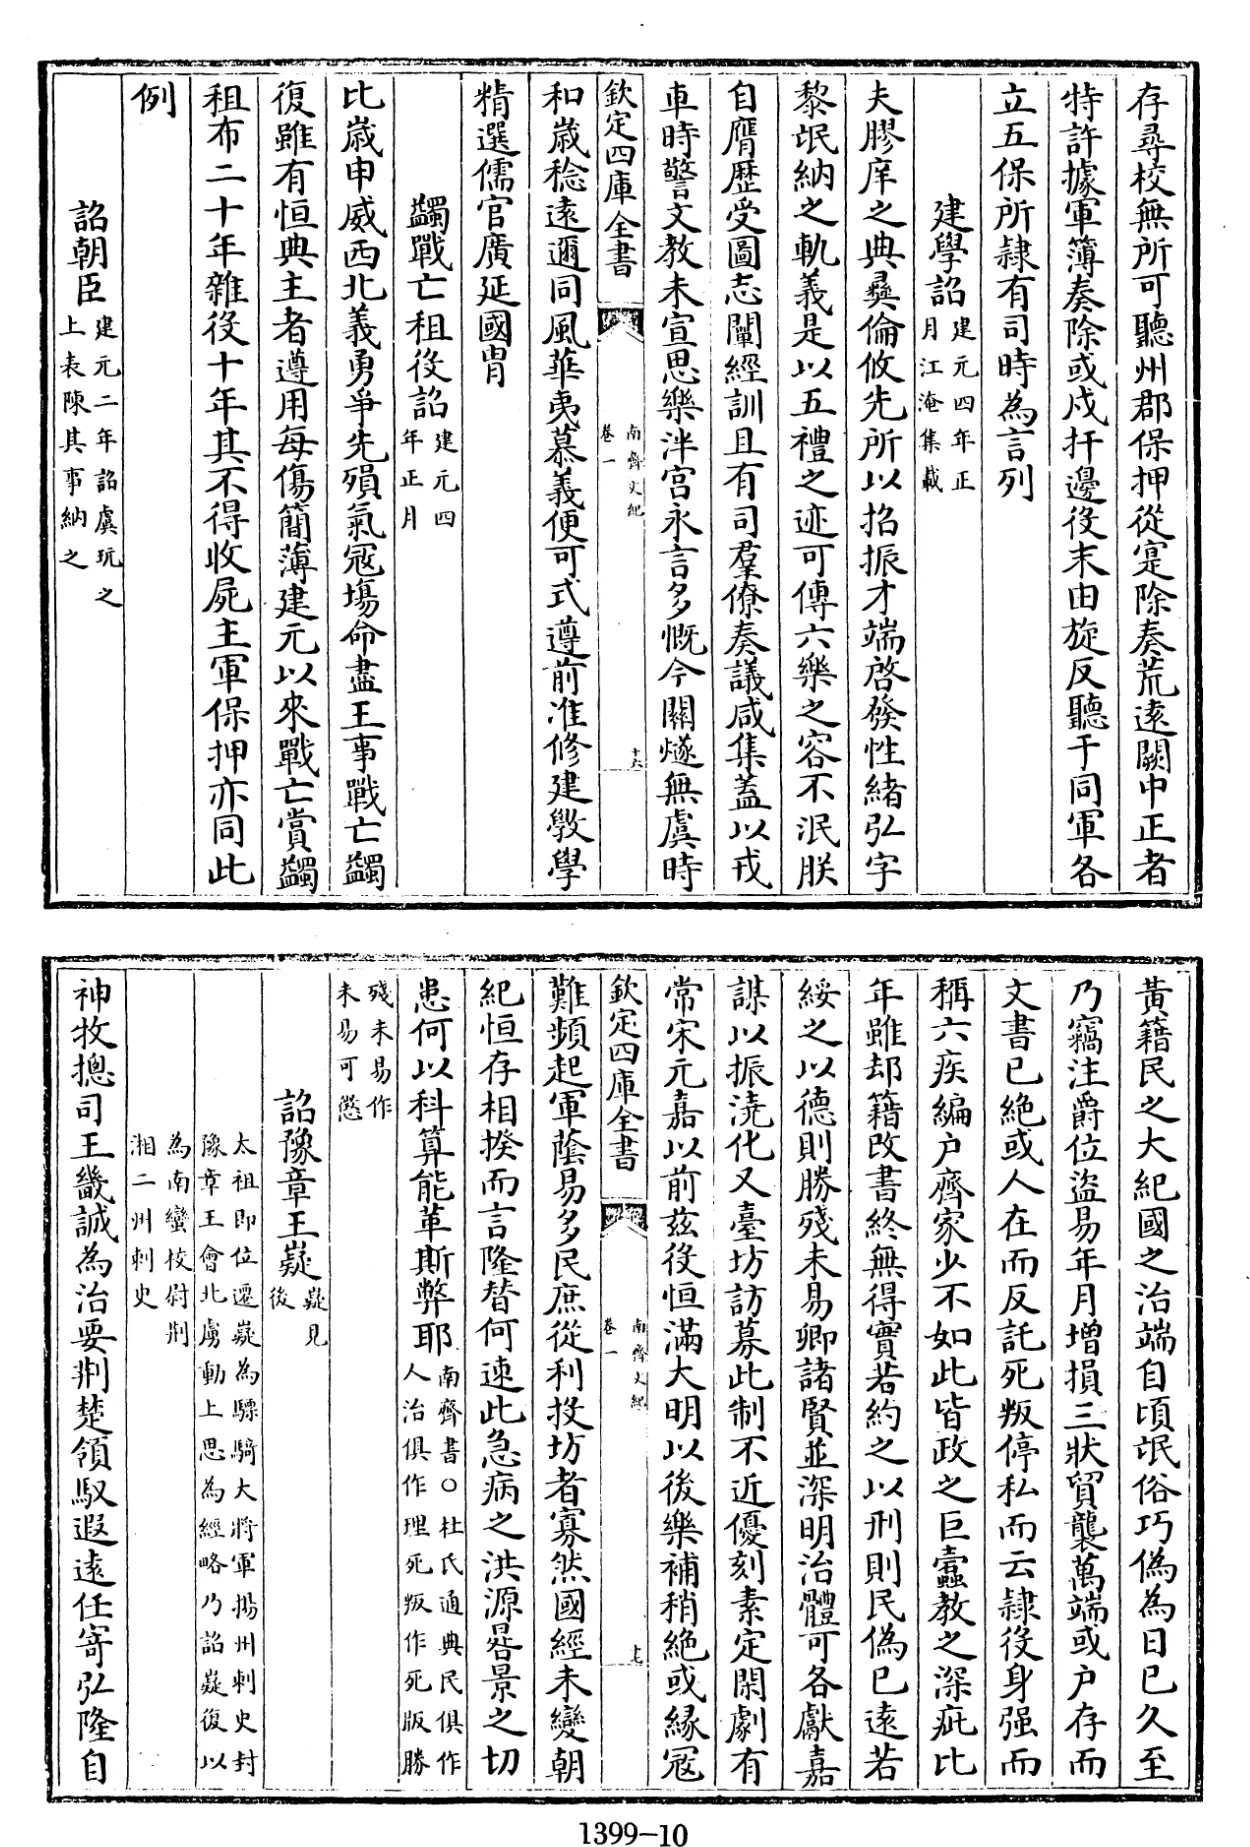 存尋校無所可聽州郡保押從寔除奏荒遠闕中正者
特許據軍簿奏除或戍扞邊役末由旋反聽于同軍各
立五保所隸有司時為言列
建學詔建元四年正
月江淹集載
夫膠庠之典彝倫攸先所以招振才端啓發性緒弘字
黎氓納之軌義是以五禮之迹可傳六樂之容不泯朕
自膺歷受圖志闡經訓且有司羣僚奏議咸集蓋以戎
車時警文教未宣思樂泮宮永言多慨今關燧無虞時
欽定四庫全書
南齊文紀
卷一
十六
和歲稔遠邇同風華夷慕義便可式遵前准修建斆學
精選儒官廣延國胄
蠲戰亡租役詔建元四
年正月
比歲申威西北義勇爭先殞氣寇塲命盡王事戰亡蠲
復雖有恒典主者遵用每傷簡薄建元以來戰亡賞蠲
租布二十年雜役十年其不得收屍主軍保押亦同此
例
詔朝臣建元二年詔虞玩之
上表陳其事納之
黃籍民之大紀國之治端自頃氓俗巧偽為日已久至
乃竊注爵位盜易年月增損三狀貿襲萬端或户存而
文書已絶或人在而反託死叛停私而云隸役身强而
稱六疾編户齊家少不如此皆政之巨蠹教之深疵比
年雖却籍改書終無得實若約之以刑則民偽已遠若
綏之以德則勝殘未易卿諸賢並深明治體可各獻嘉
謀以振澆化又臺坊訪募此制不近優刻素定閑劇有
常宋元嘉以前兹役恒滿大明以後樂補稍絶或緣寇
欽定四庫全書
南齊文紀
卷一
十七
難頻起軍蔭易多民庶從利投坊者寡然國經未變朝
紀恒存相揆而言隆替何速此急病之洪源晷景之切
患何以科算能革斯弊耶南齊書○杜氏通典民俱作
人治俱作理死叛作死版勝
殘未易作
未易可懲
詔豫章王嶷嶷見
後
太祖即位遷嶷為驃騎大將軍揚州刺史封
豫章王會北虜動上思為經略乃詔嶷復以
為南蠻校尉荆
湘二州刺史
神牧摠司王畿誠為治要荆楚領馭遐遠任寄弘隆自
1399-10